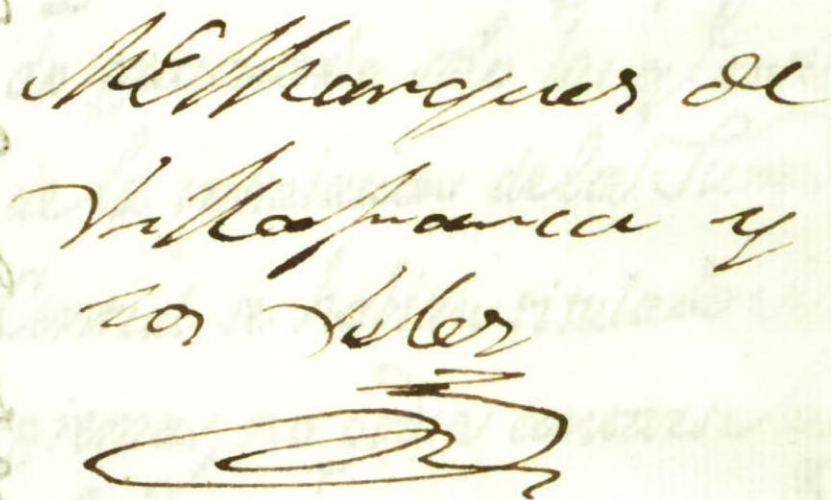 El Marques de
Villafranca y
los Velez